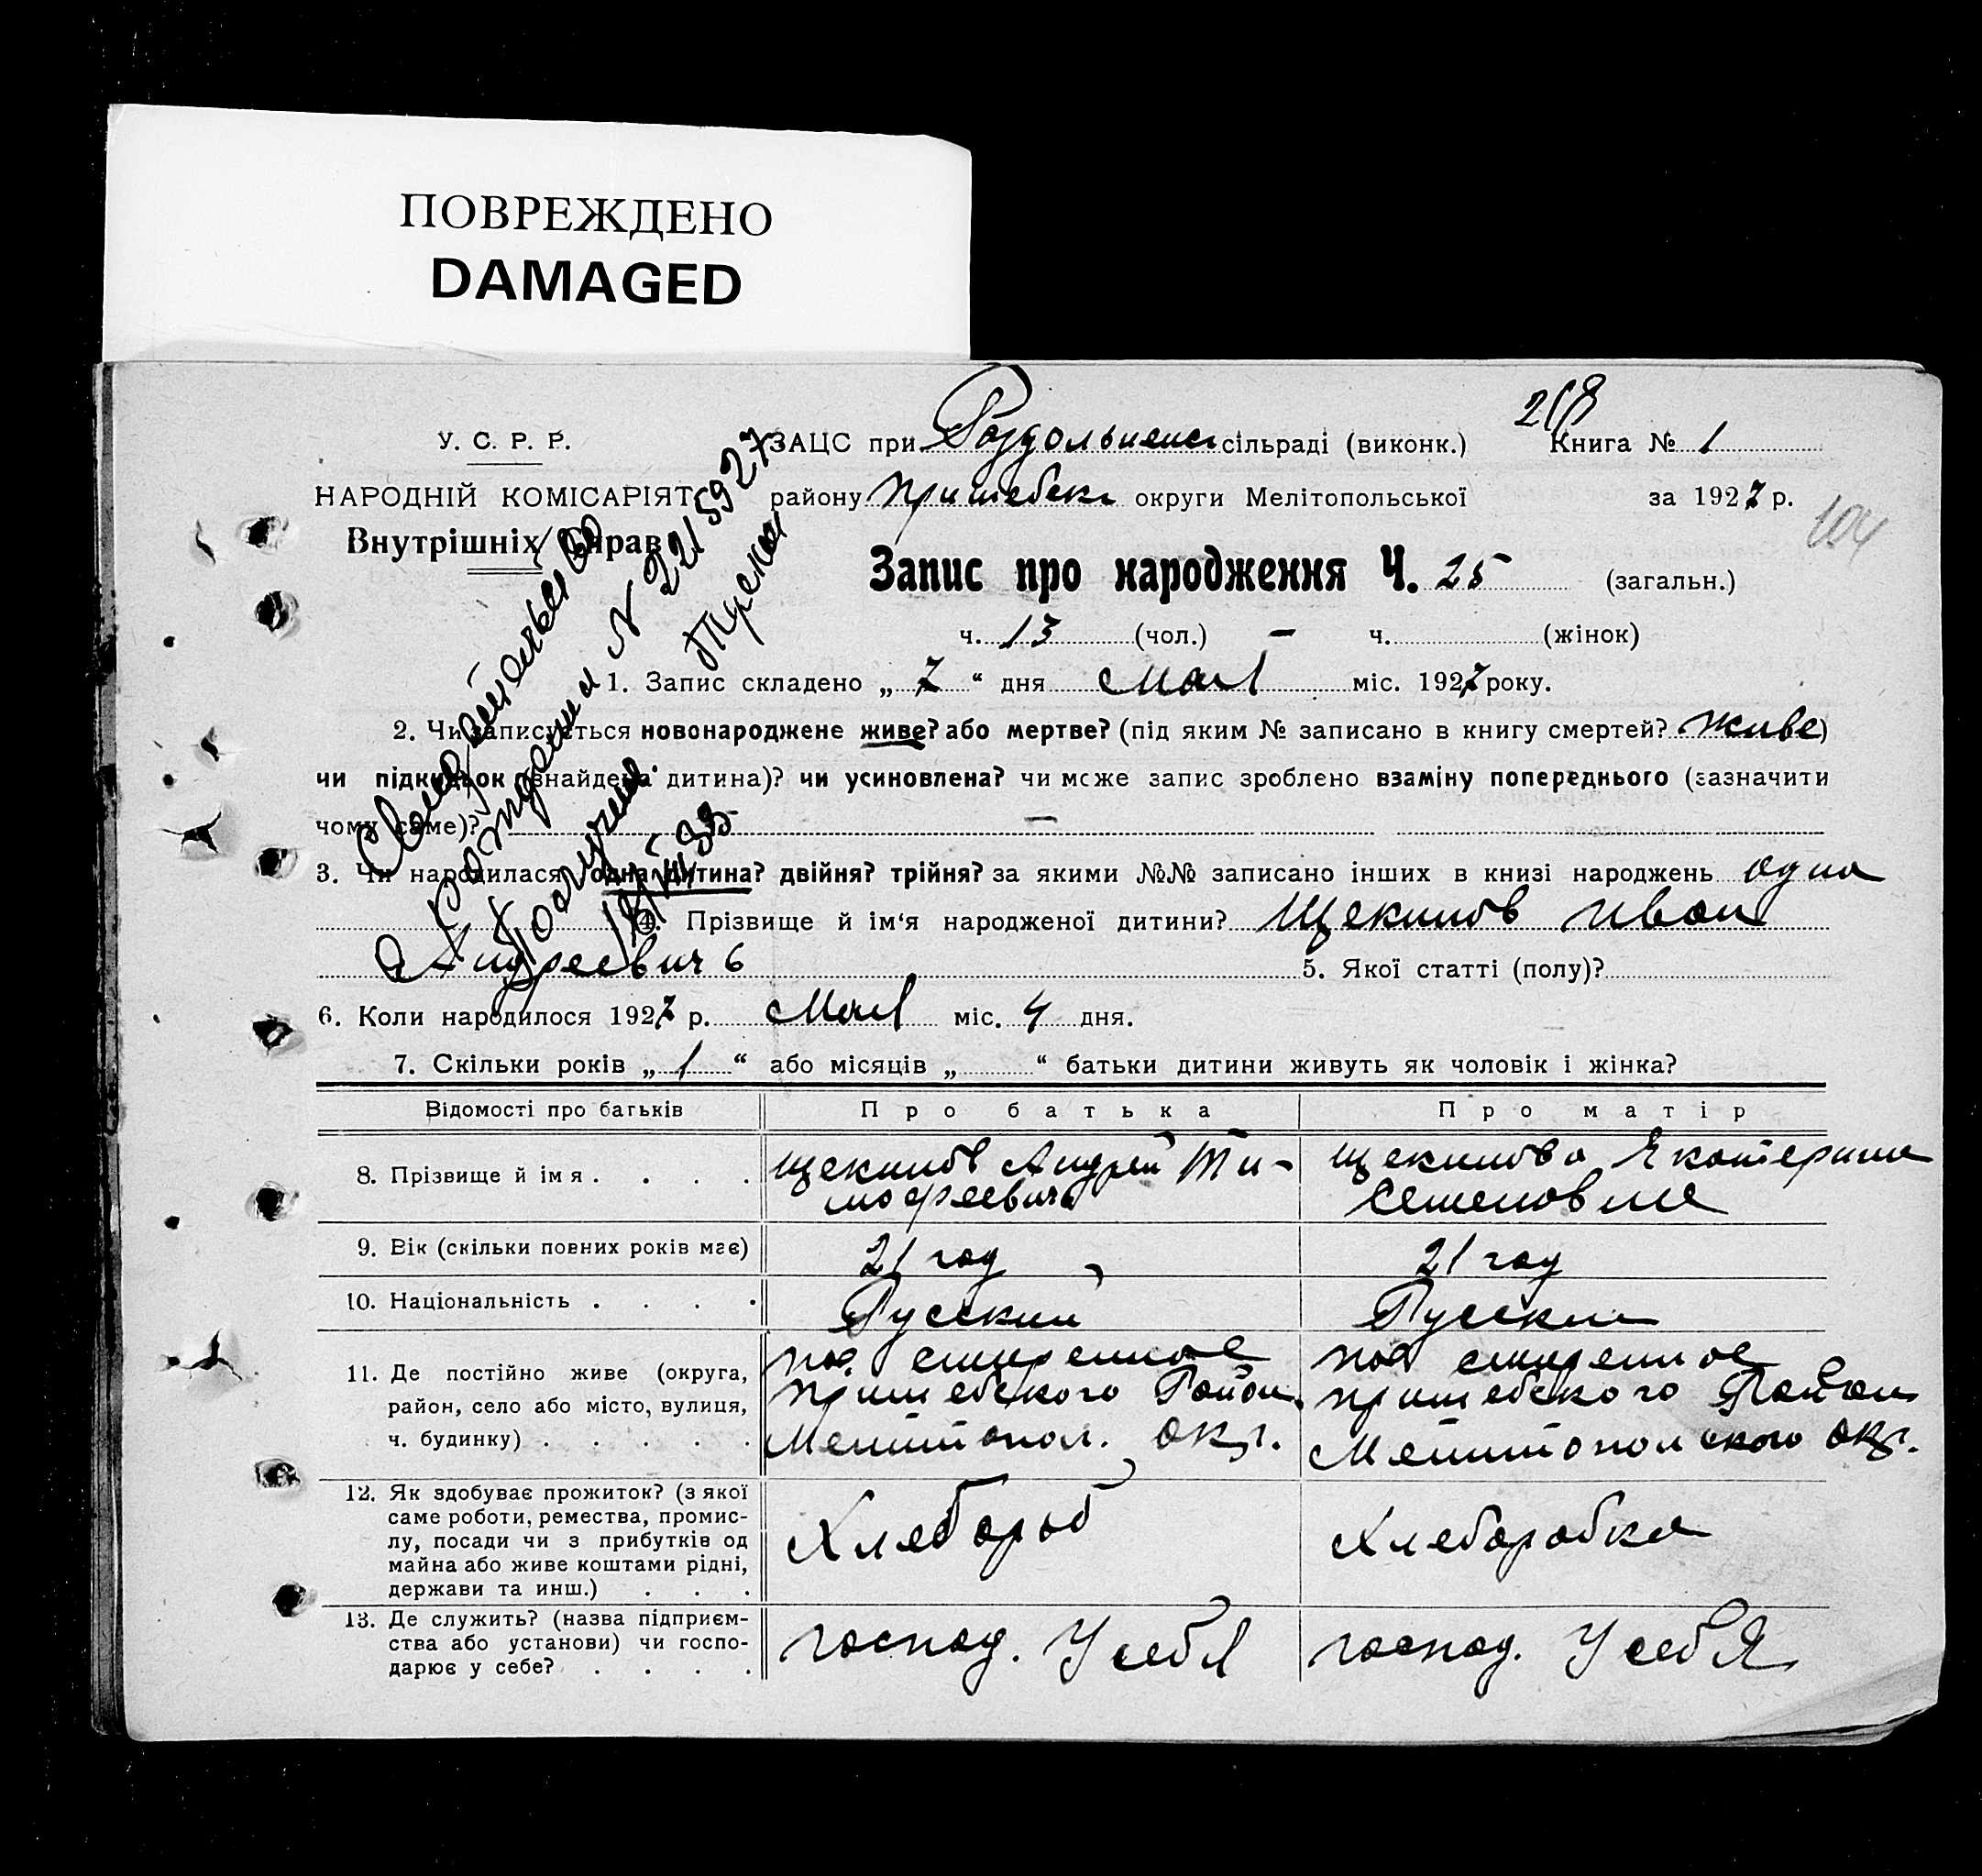 ПОВРЕЖДЕНО
DAMAGED
218
У. С. Р. Р. ЗАЦС при Роздольненск сільраді (виконк.) Книга № 1
НАРОДНІЙ КОМІСАРІЯТ району Пришебск округи Мелітопольської за 1927 р.
104
Внутрішніх Справ
Запис про народження Ч. 25 (загальн.)
ч. 13 (чол.) — ч. (жінок)
1. Запис складено „ 7 “ дня Мая міс. 1927 року.
2. Чи записується новонароджене живе? або мертве? (під яким № записано в книгу смертей? живе)
чи підкидьок (знайдена дитина)? чи усиновлена? чи може запис зроблено взаміну попереднього (зазначити
чому саме)? —
3. Чи народилася одна дитина? двійня? трійня? за якими №№ записано інших в книзі народжень одна
4. Прізвище й ім‘я народженої дитини? Щекинов Иван
Андреевич 5. Якої статті (полу)?
6. Коли народилося 1927 р. Мая міс. 4 дня.
7. Скільки років „ 1 “ або місяців „ “ батьки дитини живуть як чоловік і жінка?
Свидетельство
о рождении № 2215927
Получена
Відомості про батьків Про батька Про матір
8. Прізвище й імя . . . . Щекинов Андрей Ти-
мофеевичь Щекинова Екатерина
Семеновна
9. Вік (скільки повних років має) 21 год 21 год
10. Національність . . . . Русский Русская
11. Де постійно живе (округа,
район, село або місто, вулиця,
ч. будинку) . . . . . пос смиренное
пришебского Район.
Мелитопол. окр. пос смиренное
пришебского Район
Мелитополского окр.
12. Як здобуває прожиток? (з якої
саме роботи, ремества, промис-
лу, посади чи з прибутків од
майна або живе коштами рідні,
держави та инш.) . . . Хлебороб Хлеборобка
13. Де служить? (назва підприєм-
ства або установи) чи госпо-
дарює у себе? . . . . господ. У себя господ. У себя